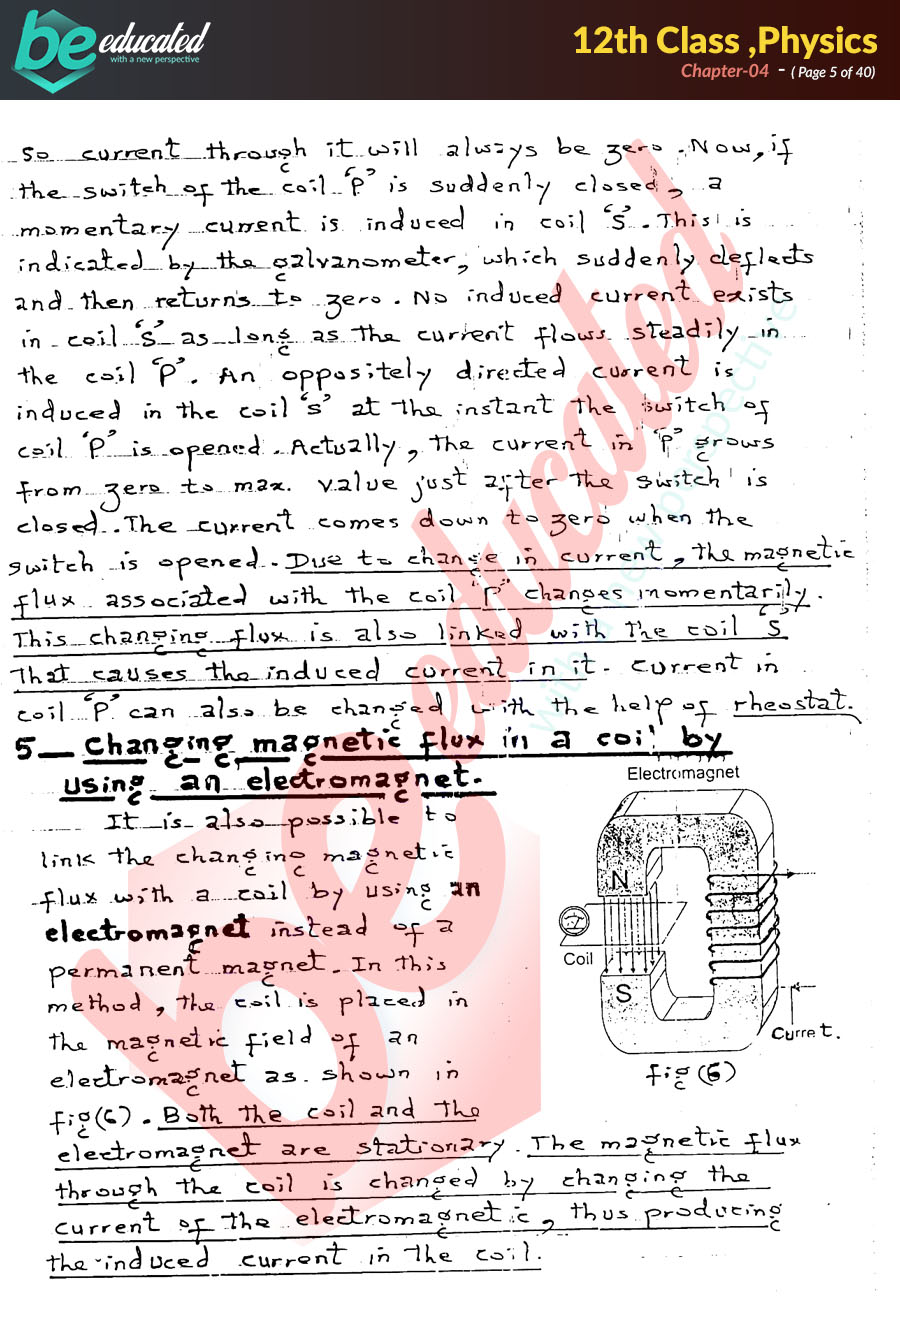 be educated
with a new perspective
12th Class ,Physics
Chapter-04 - ( Page 5 of 40)
so current through it will always be zero. Now, if
the switch of the coil 'P' is suddenly closed, a
momentary current is induced in coil 'S'. This is
indicated by the galvanometer, which suddenly deflects
and then returns to zero. No induced current exists
in coil 'S' as long as the current flows steadily in
the coil 'P'. An oppositely directed current is
induced in the coil 's' at the instant the switch of
coil 'P' is opened. Actually, the current in 'P' grows
from zero to max. value just after the switch is
closed. The current comes down to zero when the
switch is opened. Due to change in current, the magnetic
flux associated with the coil "P" changes momentarily.
This changing flux is also linked with the coil 'S'
That causes the induced current in it. Current in
coil 'P' can also be changed with the help of rheostat.
5— Changing magnetic flux in a coil by
using an electromagnet.
Electromagnet
It is also possible to
link the changing magnetic
flux with a coil by using an
electromagnet instead of a
permanent magnet. In this
method, the coil is placed in
the magnetic field of an
electromagnet as shown in
fig(6). Both the coil and the
N
Coil
S
Curre t.
fig(6)
electromagnet are stationary. The magnetic flux
through the coil is changed by changing the
current of the electromagnetic, thus producing
the induced current in the coil.
be educated
with a new perspective